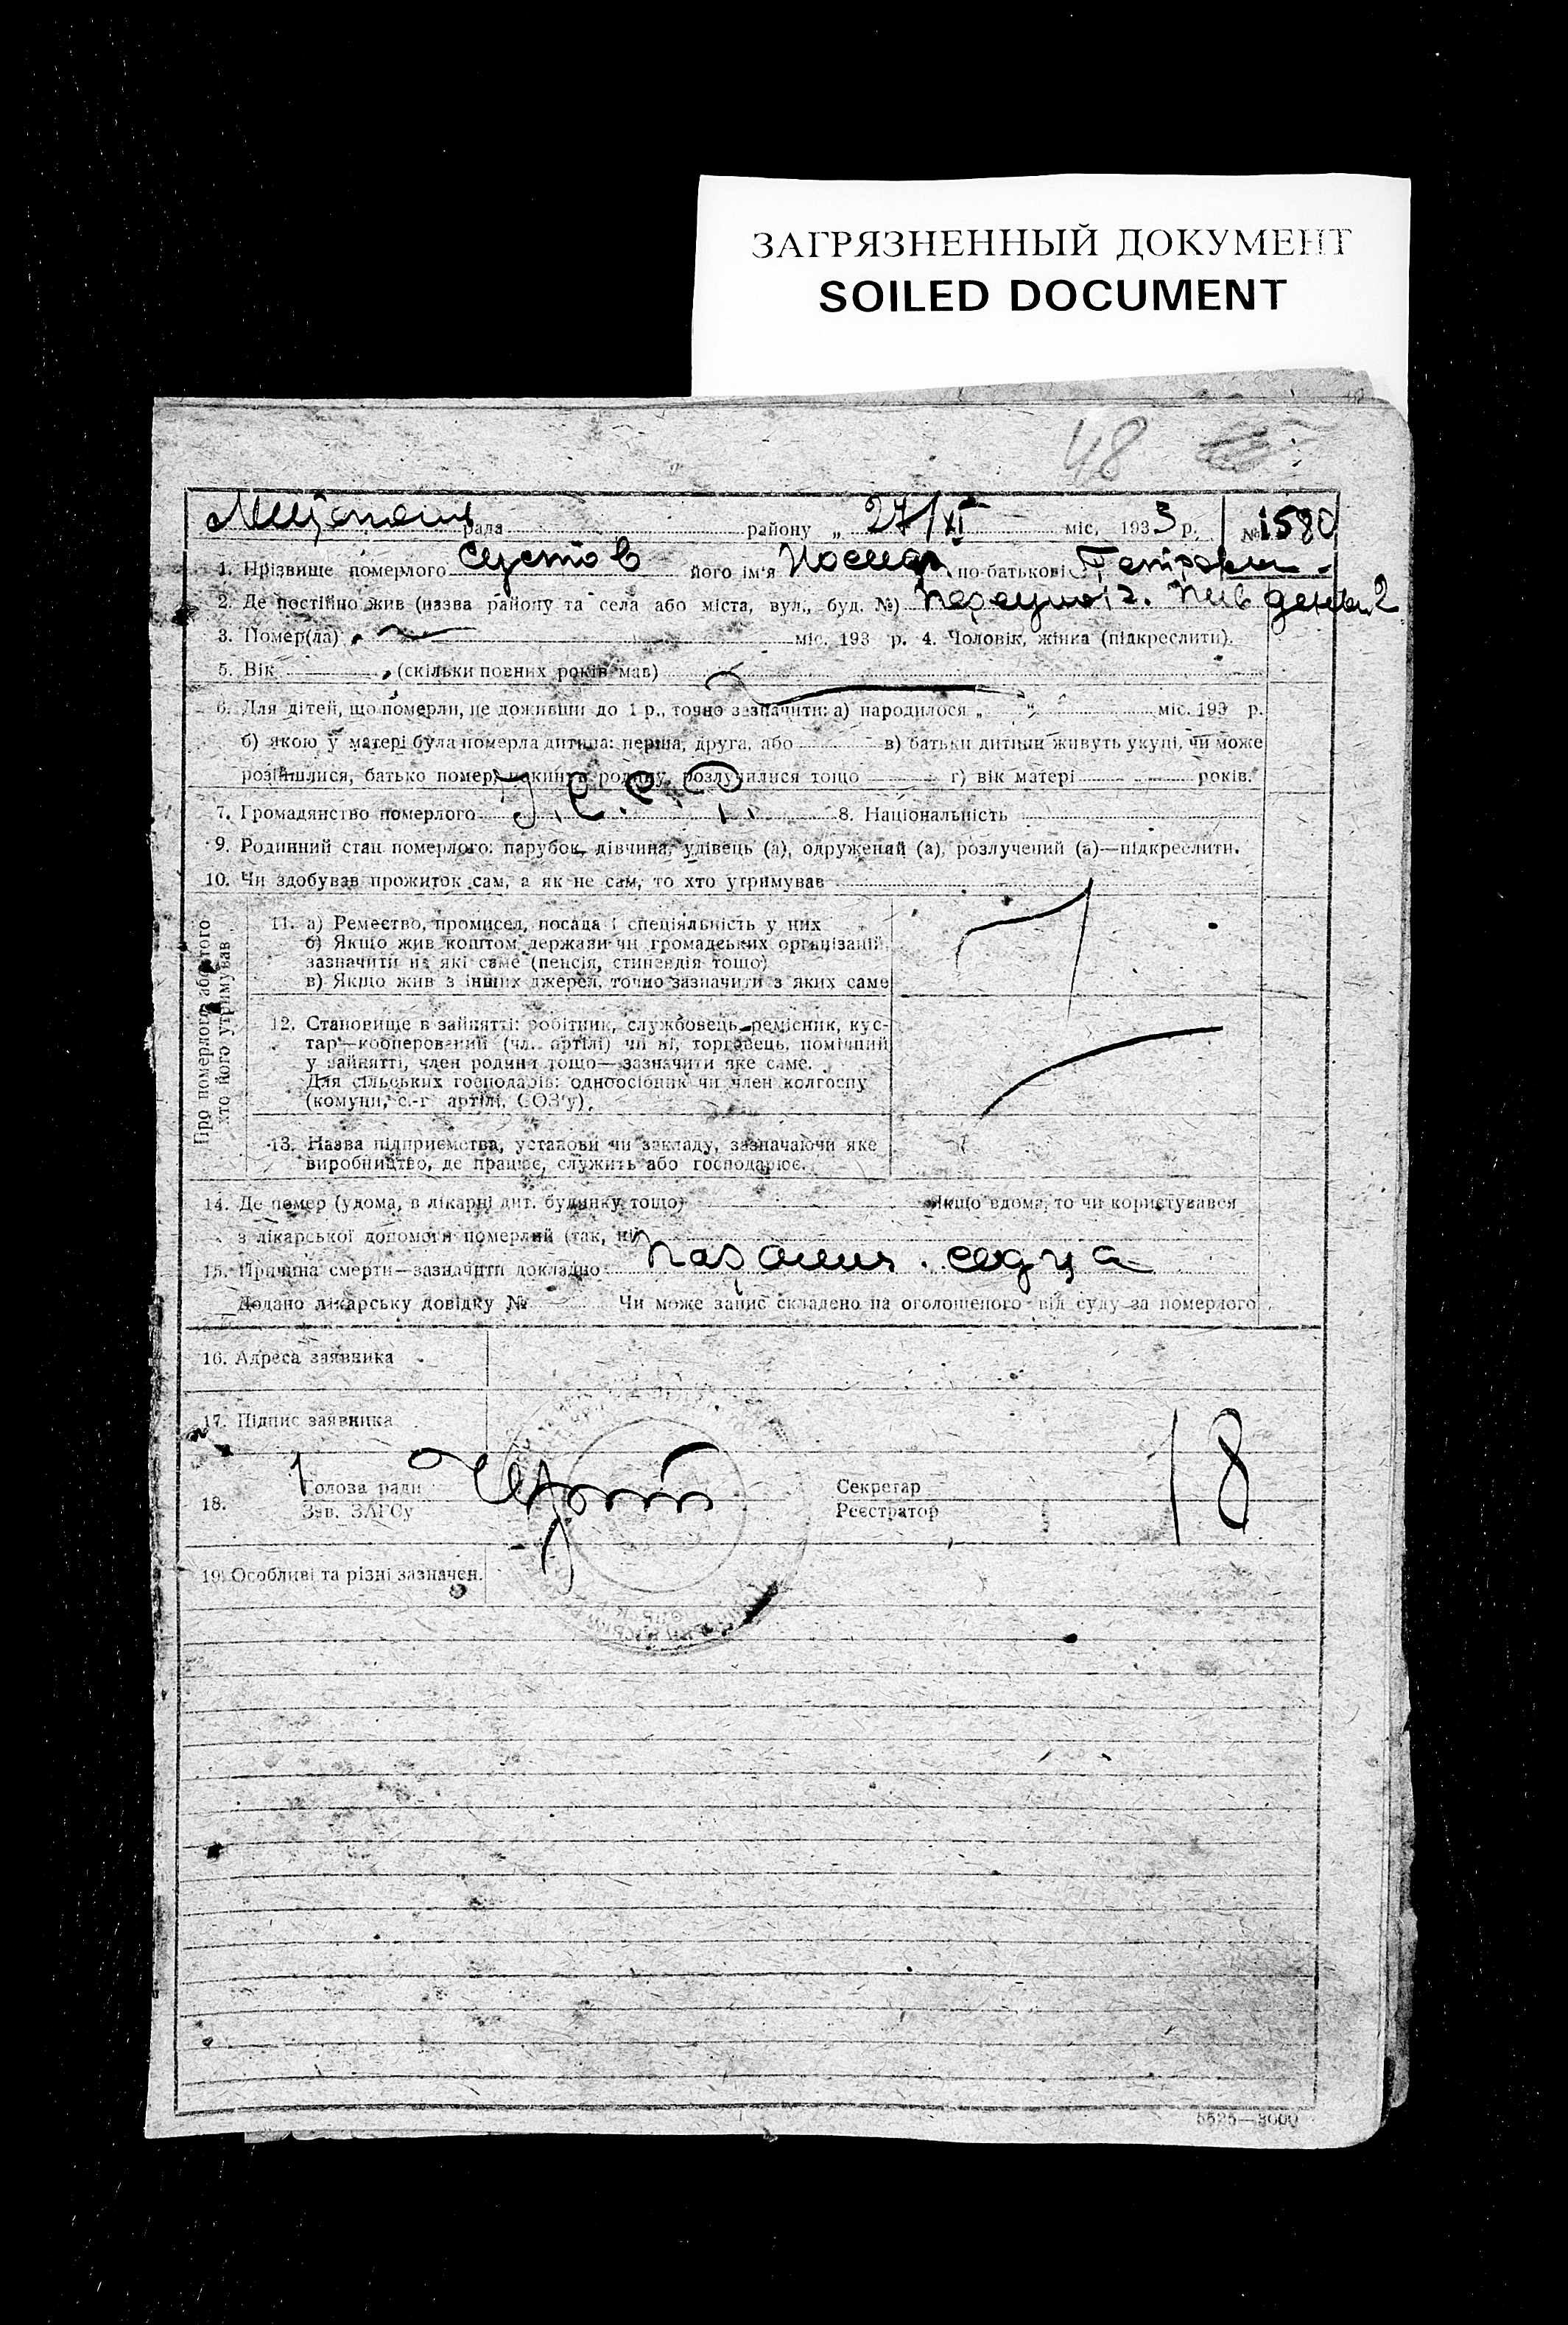 ЗАГРЯЗНЕННЫЙ ДОКУМЕНТ
SOILED DOCUMENT
48
рада району „ 27/XI міс. 1933 р. № 1580
1. Прізвище померлого його ім'я по-батькові
2. Де постійно жив (назва району та села або міста, вул., буд. №)
3. Помер(ла) міс. 193 р. 4. Чоловік, жінка (підкреслити).
5. Вік (скільки повних років мав)
6. Для дітей, що померли, не доживши до 1 р., точно зазначити: а) народилося „ “ міс. 193 р.
б) якою у матері була померла дитина: перша, друга, або в) батьки дитини живуть укупі, чи може
розійшлися, батько помер, покинув родину, розлучилися тощо г) вік матері років.
7. Громадянство померлого У.С.С.Р. 8. Національність
9. Родинний стан померлого: парубок, дівчина, удівець (а), одружений (а), розлучений (а)—підкреслити.
10. Чи здобував прожиток сам, а як не сам, то хто утримував
Про померлого або того
хто його утримував
11. а) Ремество, промисел, посада і спеціяльність у них
б) Якщо жив коштом держави чи громадських організацій,
зазначити на які саме (пенсія, стипендія тощо)
в) Якщо жив з інших джерел, точно зазначити з яких саме
12. Становище в зайнятті: робітник, службовець, ремісник, кус-
тар—кооперований (чл. артілі) чи ні, торговець, помічний
у зайнятті, член родини тощо—зазначити яке саме.
Для сільських господарів: одноосібник чи член колгоспу
(комуни, с.-г. артілі, СОЗ'у).
13. Назва підприємства, установи чи закладу, зазначаючи яке
виробництво, де працює, служить або господарює.
14. Де помер (удома, в лікарні дит. будинку тощо) Якщо вдома, то чи користувався
з лікарської допомоги померлий (так, ні)
15. Причина смерти—зазначити докладно серця
Додано лікарську довідку № Чи може запис складено на оголошеного від суду за померлого
16. Адреса заявника
17. Підпис заявника
18. Голова ради Секретар
Зав. ЗАГСу Реєстратор
18
19. Особливі та різні зазначен.
5525—3000